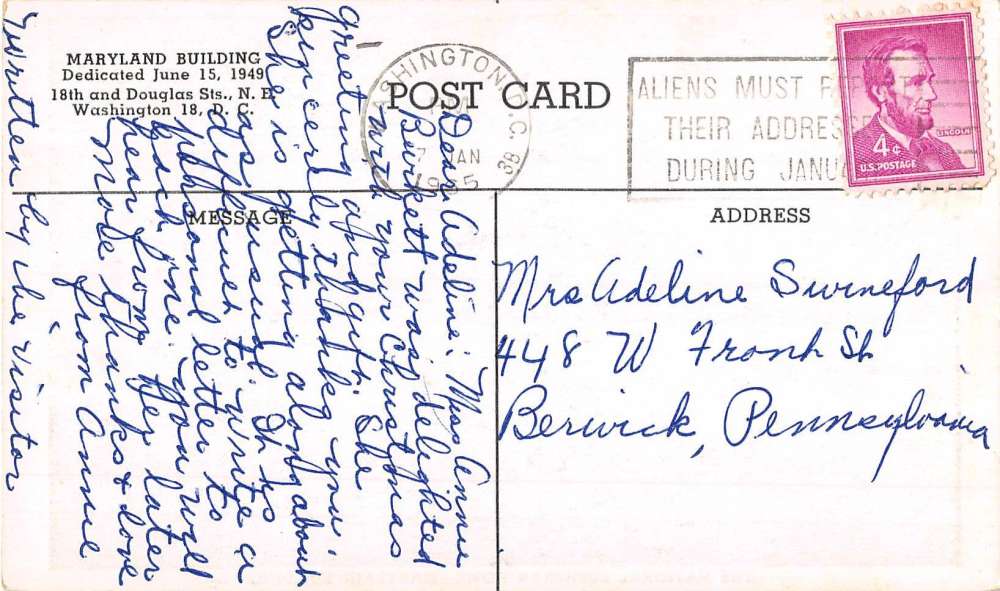 MARYLAND BUILDING
Dedicated June 15, 1949
18th and Douglas Sts., N. E.
Washington 18, D. C.
POST CARD
WASHINGTON, D.C.
JAN
38
ALIENS MUST
THEIR ADDRES
DURING JANU
LINCOLN
4¢
U.S. POSTAGE
MESSAGE
Dear Adeline: Miss Annie
Burkett was delighted
with your Christmas
greeting and gift. She
sincerely thanks you.
She is getting along about
as usual. It is
difficult to write a
personal letter to
each one. You will
hear from her later
More thanks & love
from Annie
Written by the visitor
ADDRESS
Mrs Adeline Swineford
448 W Front St
Berwick, Pennsylvania